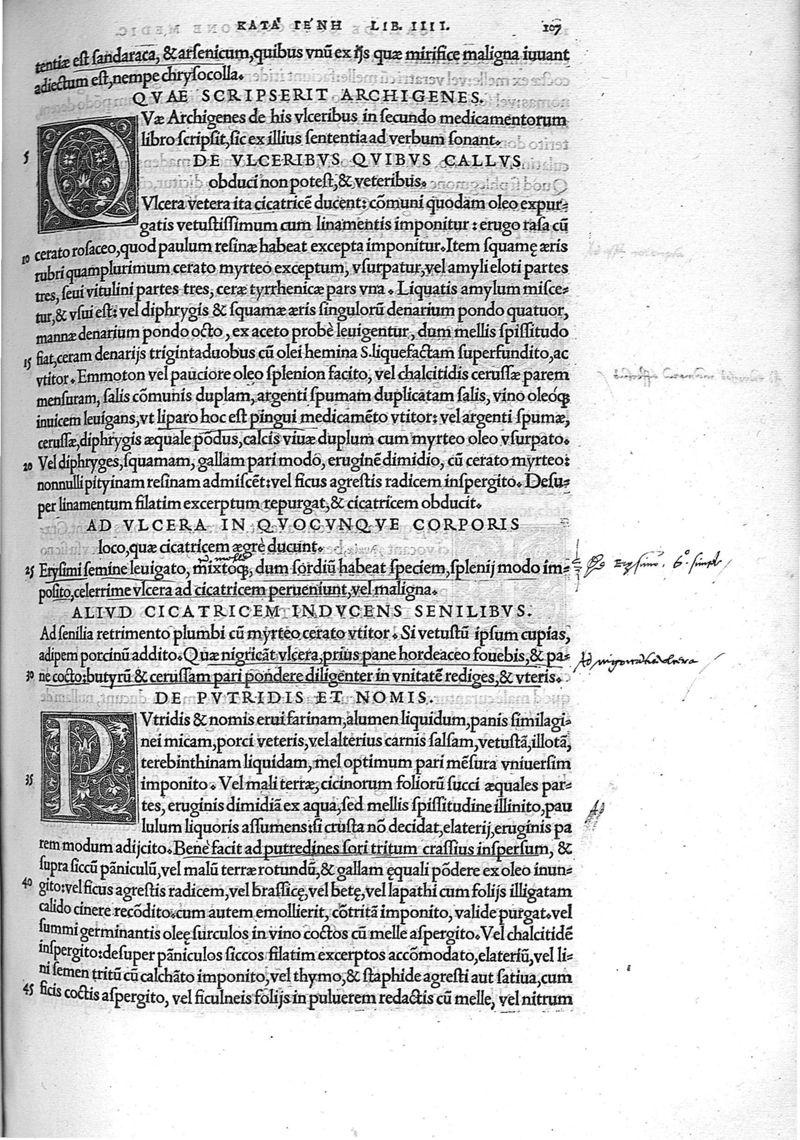 ΚΑΤΑ ΓΕΝΗ LIB. IIII. 107
tentiæ est sandaraca, & arsenicum, quibus vnũ ex ijs quæ mirifice maligna iuuant
adiectum est, nempe chrysocolla.
QVAE SCRIPSERIT ARCHIGENES.
QVæ Archigenes de his vlceribus in secundo medicamentorum
libro scripsit, sic ex illius sententia ad verbum sonant.
5 DE VLCERIBVS QVIBVS CALLVS
obduci non potest, & veteribus.
Vlcera vetera ita cicatricẽ ducent: cõmuni quodam oleo expur-
gatis vetustissimum cum linamentis imponitur: erugo rasa cũ
10 cerato rosaceo, quod paulum resinæ habeat excepta imponitur. Item squamę æris
rubri quamplurimum cerato myrteo exceptum, vsurpatur, vel amyli eloti partes
tres, seui vitulini partes tres, ceræ tyrrhenicæ pars vna. Liquatis amylum misce-
tur, & vsui est: vel diphrygis & squamæ æris singulorũ denarium pondo quatuor,
mannæ denarium pondo octo, ex aceto probè leuigentur, dum mellis spissitudo
15 fiat, ceram denarijs triginta duobus cũ olei hemina S. liquefactam superfundito, ac
vtitor. Emmoton vel pauciore oleo splenion facito, vel chalcitidis cerussæ parem
mensuram, salis cõmunis duplam, argenti spumam duplicatam salis, vino oleoq́;
inuicem leuigans, vt liparo hoc est pingui medicamẽto vtitor: vel argenti spumæ,
cerussæ, diphrygis æquale põdus, calcis viuæ duplum cum myrteo oleo vsurpato.
20 Vel diphryges, squamam, gallam pari modo, eruginẽ dimidio, cũ cerato myrteo:
nonnulli pityinam resinam admiscẽt: vel ficus agrestis radicem inspergito. Desu-
per linamentum filatim excerptum repurgat, & cicatricem obducit.
AD VLCERA IN QVOCVNQVE CORPORIS
loco, quæ cicatricem ægrè ducunt.
25 Erysimi semine leuigato, mixtoq́;, dum sordiũ habeat speciem, splenij modo im-
posito, celerrime vlcera ad cicatricem perueniunt, vel maligna.
ALIVD CICATRICEM INDVCENS SENILIBVS.
Ad senilia retrimento plumbi cũ myrteo cerato vtitor. Si vetustũ ipsum cupias,
adipem porcinũ addito. Quæ nigricãt vlcera, prius pane hordeaceo fouebis, & pa-
30 ne cocto: butyrũ & cerussam pari pondere diligenter in vnitatẽ rediges, & vteris.
DE PVTRIDIS ET NOMIS.
PVtridis & nomis erui farinam, alumen liquidum, panis similagi-
nei micam, porci veteris, vel alterius carnis salsam, vetustã, illotã,
terebinthinam liquidam, mel optimum pari mẽsura vniuersim
35 imponito. Vel mali terræ, cicinorum foliorũ succi æquales par-
tes, eruginis dimidiã ex aqua, sed mellis spissitudine illinito, pau
lulum liquoris assumens: si crusta nõ decidat, elaterij, eruginis pa
rem modum adijcito. Benè facit ad putredines sori tritum crassius inspersum, &
supra siccũ pãniculũ, vel malũ terræ rotundũ, & gallam ęquali põdere ex oleo inun-
40 gito: vel ficus agrestis radicem, vel brassicę, vel betę, vel lapathi cum folijs illigatam
calido cinere recõdito: cum autem emollierit, cõtritã imponito, valide purgat. vel
summi germinantis oleę surculos in vino coctos cũ melle aspergito. Vel chalcitidẽ
inspergito: desuper pãniculos siccos filatim excerptos accõmodato, elateriũ, vel li-
ni semen tritũ cũ calchãto imponito, vel thymo, & staphide agresti aut satiua, cum
45 ficis coctis aspergito, vel ficulneis folijs in puluerem redactis cũ melle, vel nitrum